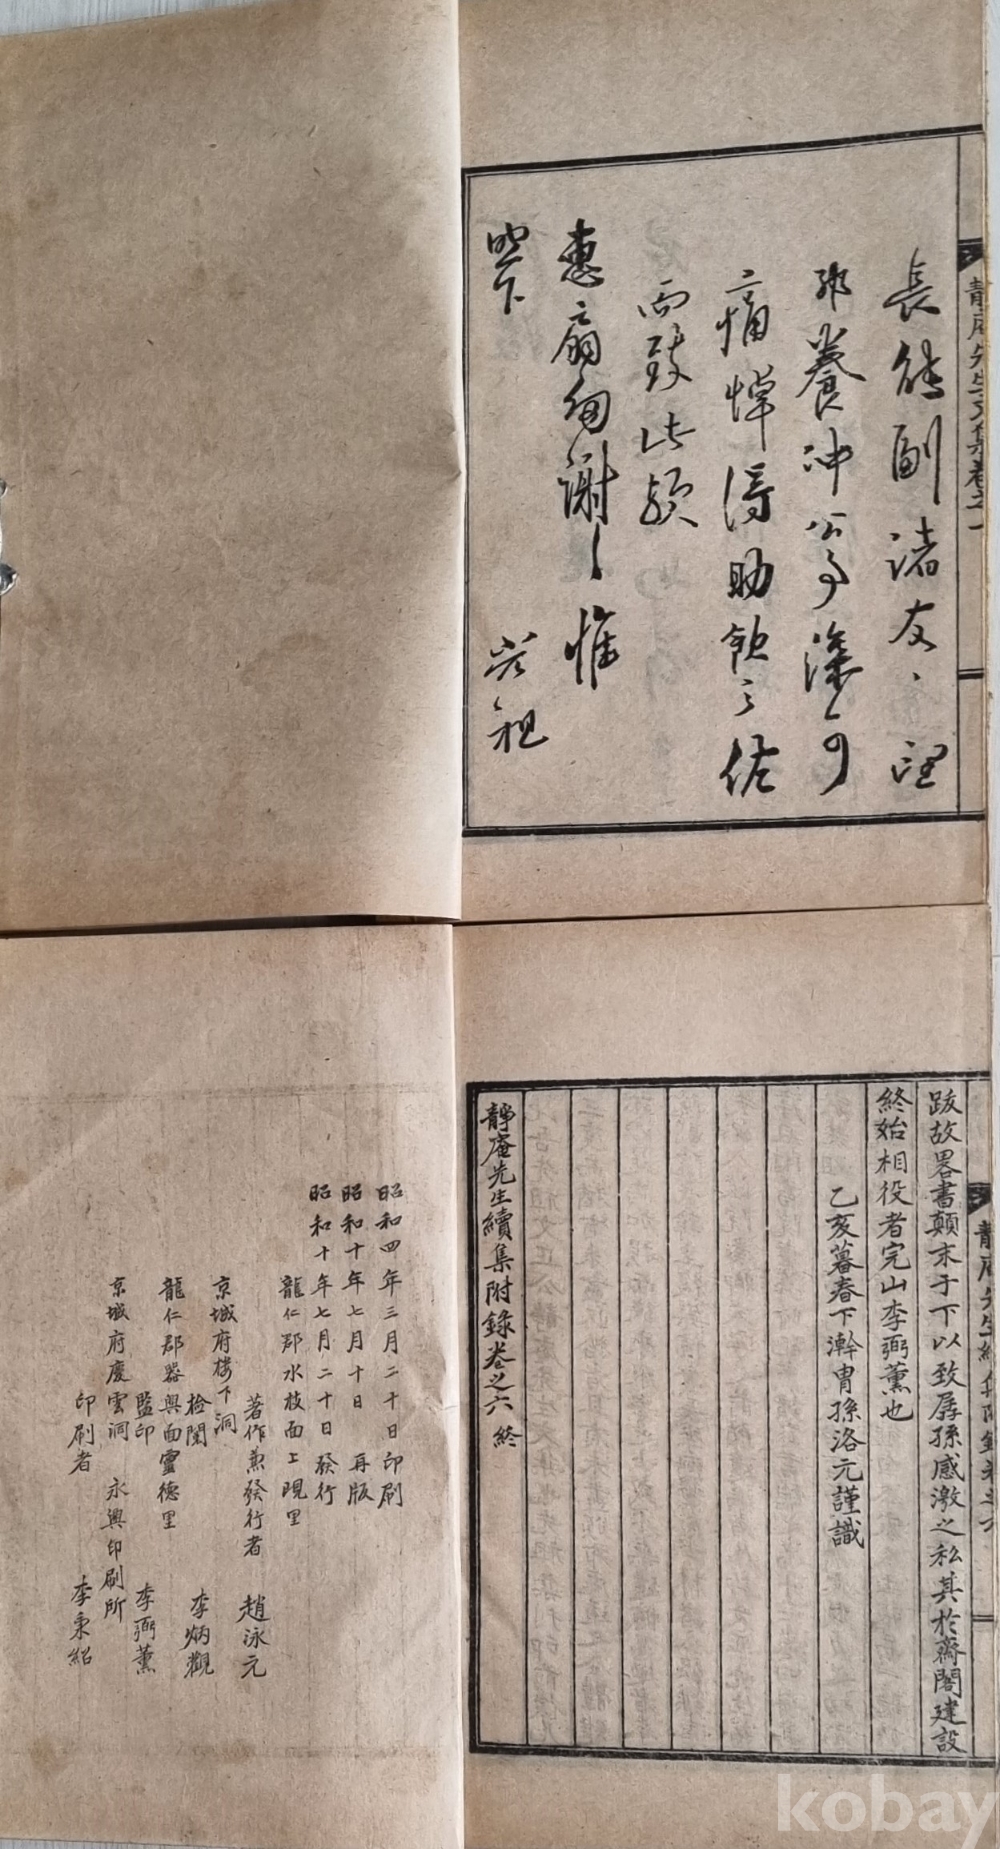 靜庵先生文集卷之一
諸友、望
養冲公事深、可
痛悼得助飮之佐
而致此
惠扇函謝、惟
下
光祖
跋故畧書顛末于下以致孱孫感激之私其於齋閣建設
終始相役者完山李弼薰也
乙亥暮春下澣胄孫洛元謹識
靜庵先生續集附錄卷之六 終
靜庵先生續集附錄卷之六
昭和四年三月二十日印刷
昭和十年七月十日 再版
昭和十年七月二十日發行
龍仁郡水枝面上現里
著作兼發行者 趙泳元
京城府樓下洞
檢閱 李炳觀
龍仁郡器興面靈德里
監印 李弼薰
京城府慶雲洞 永興印刷所
印刷者 李秉紹
kobay